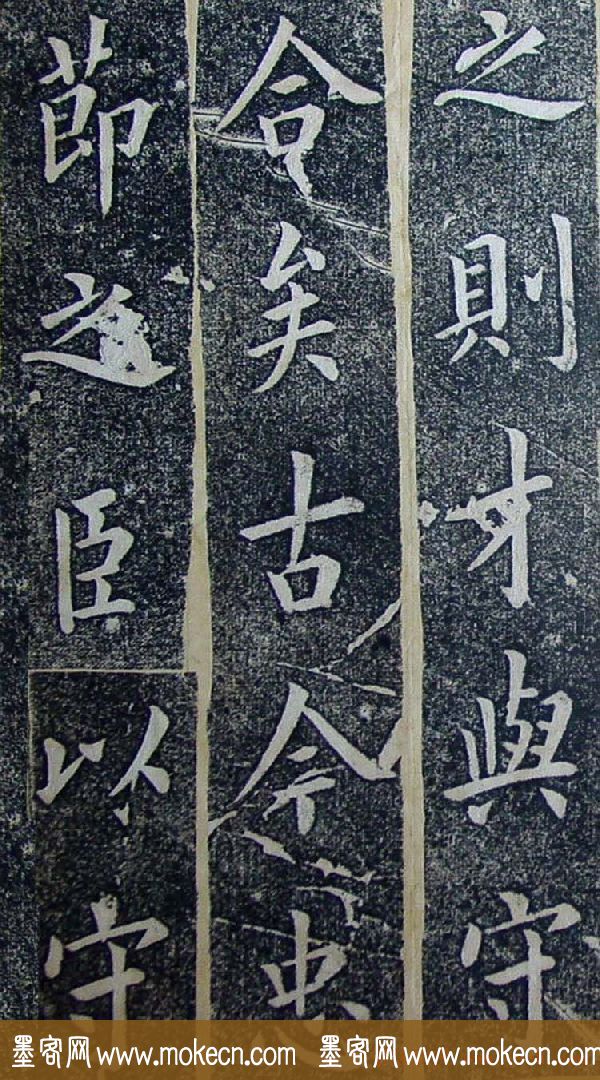 之則才與守
合矣古今忠
節之臣以守
墨客网 www.mokecn.com 墨客网 www.mokecn.com